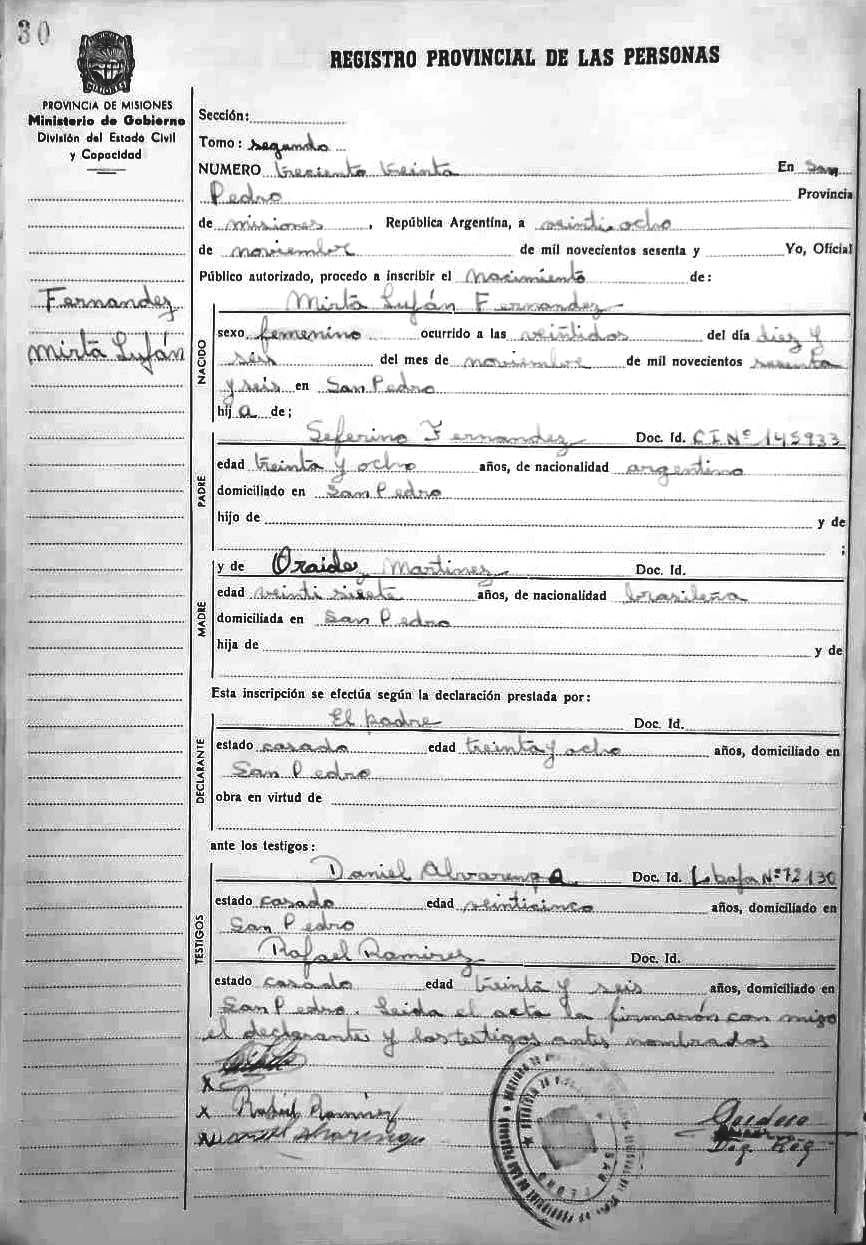 30
REGISTRO PROVINCIAL DE LAS PERSONAS
PROVINCIA DE MISIONES
Ministerio de Gobierno
División del Estado Civil
y Capacidad
Sección:
Tomo: segundo
NUMERO treciento treinta En San
Pedro Provincia
de misiones, República Argentina, a veinti ocho
de noviembre de mil novecientos sesenta y Yo, Oficial
Público autorizado, procedo a inscribir el nacimiento de:
Fernandez
Mirta Luján
NACIDO
Mirta Luján Fernandez
sexo femenino ocurrido a las veintidos del día diez y
seis del mes de noviembre de mil novecientos sesenta
y seis en San Pedro
hija de;
PADRE
Seferino Fernandez Doc. Id. C.I.Nº 145933
edad treinta y ocho años, de nacionalidad argentino
domiciliado en San Pedro
hijo de y de
;
MADRE
y de Oraide Martinez Doc. Id.
edad veinti siete años, de nacionalidad brasileña
domiciliada en San Pedro
hija de y de
Esta inscripción se efectúa según la declaración prestada por:
DECLARANTE
El padre Doc. Id.
estado casado edad treinta y ocho años, domiciliado en
San Pedro
obra en virtud de
ante los testigos:
TESTIGOS
Daniel Alvarenga Doc. Id. Nº 72130
estado casado edad veinticinco años, domiciliado en
San Pedro
Rafael Ramirez Doc. Id.
estado casado edad treinta y seis años, domiciliado en
San Pedro. Leida el acta la firmarón con migo
el declarante y los testigos antes nombrados
X
X Rafael Ramirez
X
SAN PEDRO